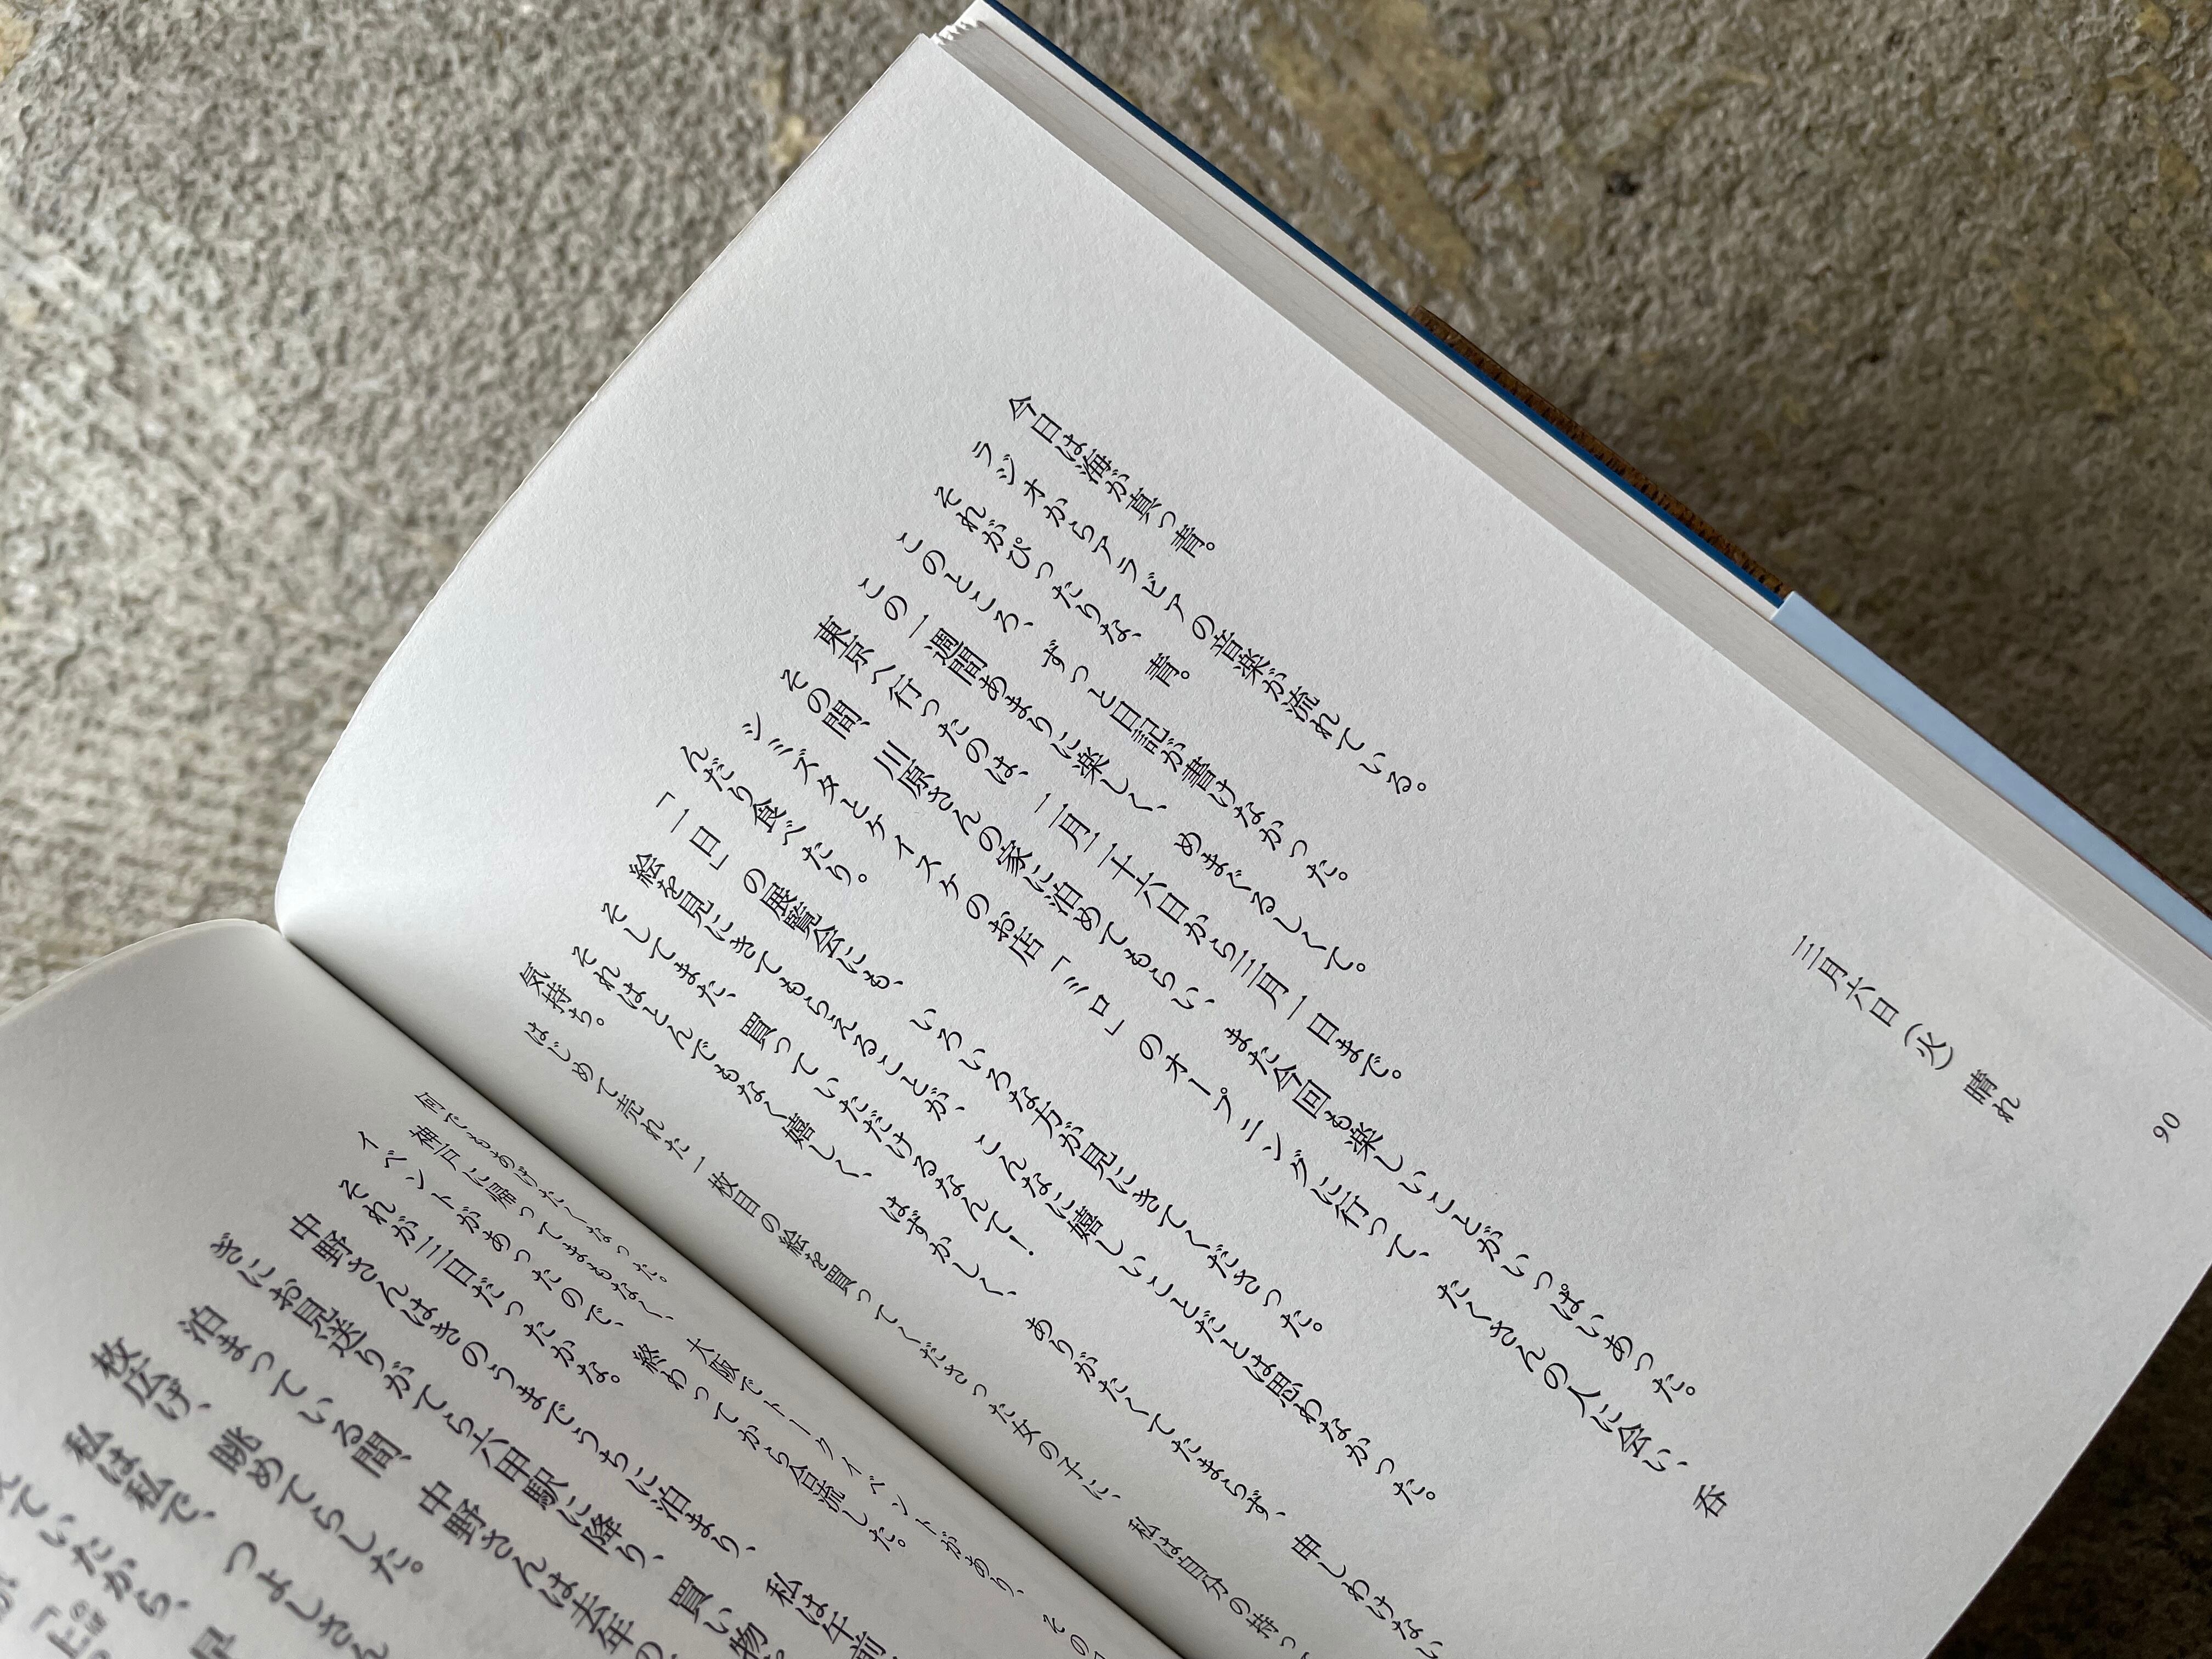 90
三月六日(火) 晴れ
今日は海が真っ青。
ラジオからアラビアの音楽が流れている。
それがぴったりな、青。
このところ、ずっと日記が書けなかった。
この一週間あまりに楽しく、めまぐるしくて。
東京へ行ったのは、二月二十六日から三月一日まで。
その間、川原さんの家に泊めてもらい、また今回も楽しいことがいっぱいあった。
シミズタとケイスケのお店「ミロ」のオープニングに行って、たくさんの人に会い、呑
んだり食べたり。
「一日」の展覧会にも、いろいろな方が見にきてくださった。
絵を見にきてもらえることが、こんなに嬉しいことだとは思わなかった。
そしてまた、買っていただけるなんて!
それはとんでもなく嬉しく、はずかしく、ありがたくてたまらず、申しわけない
気持ち。
はじめて売れた一枚目の絵を買ってくださった女の子に、私は自分の持っ
何でもあげたくなった。
神戸に帰ってまもなく、大阪でトークイベントがあり、その
イベントがあったので、終わってから合流した。
それが三日だったかな。
中野さんはきのうまでうちに泊まり、私は午前
ぎにお見送りがてら六甲駅に降り、買い物
泊まっている間、中野さんは去年の
枚広げ、眺めてらした。
私は私で、つよしさん
ていたから、早
「上